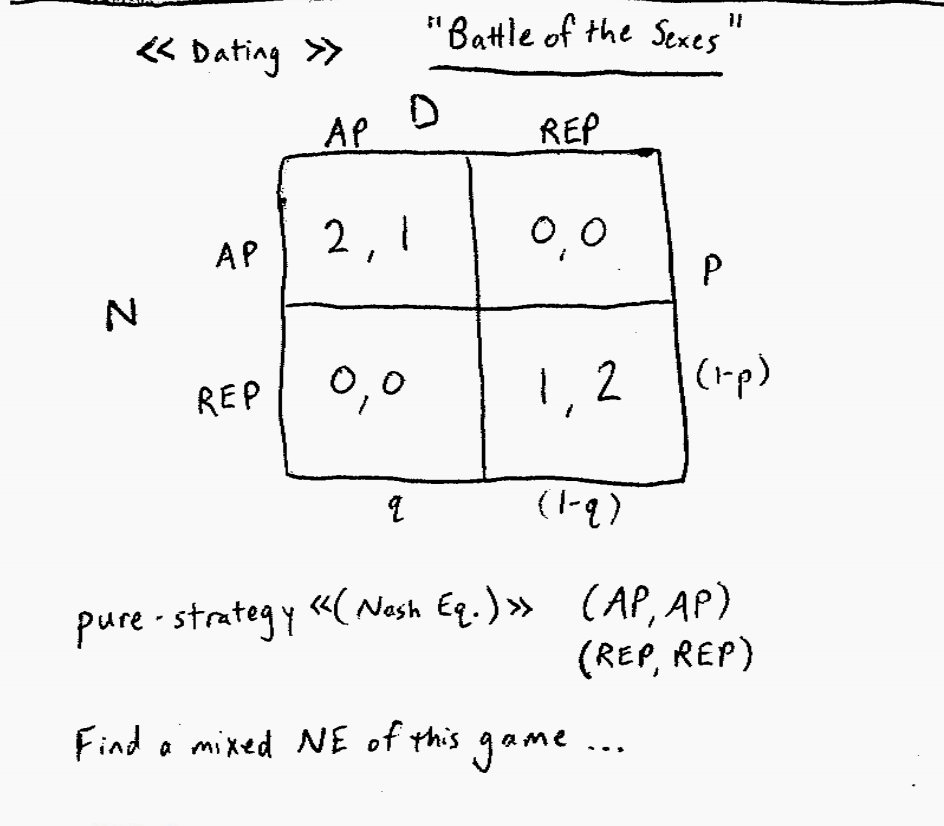 << Dating >> "Battle of the Sexes"
D
AP REP
AP 2, 1 0, 0 P
N
REP 0, 0 1, 2 (1-p)
q (1-q)
pure-strategy <<(Nash Eq.)>> (AP, AP)
(REP, REP)
Find a mixed NE of this game ...